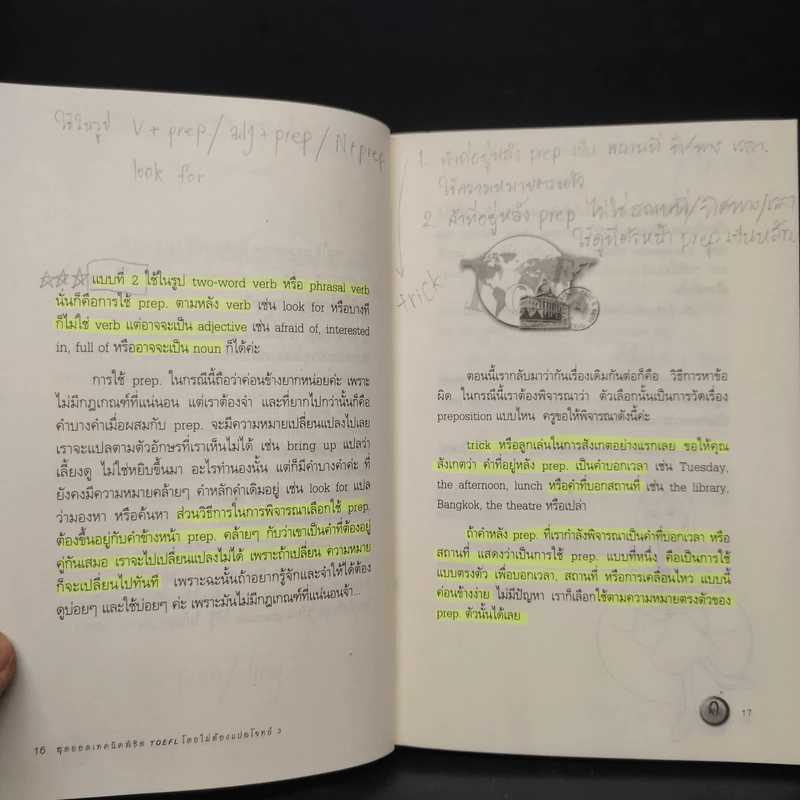 ใช้ในรูป V + prep / adj + prep / N + prep
look for
แบบที่ 2 ใช้ในรูป two-word verb หรือ phrasal verb
นั่นก็คือการใช้ prep. ตามหลัง verb เช่น look for หรือบางที
ก็ไม่ใช่ verb แต่อาจจะเป็น adjective เช่น afraid of, interested
in, full of หรืออาจจะเป็น noun ก็ได้ค่ะ
การใช้ prep. ในกรณีนี้ถือว่าค่อนข้างยากหน่อยค่ะ เพราะ
ไม่มีกฎเกณฑ์ที่แน่นอน แต่เราต้องจำ และที่ยากไปกว่านั้นก็คือ
คำบางคำเมื่อผสมกับ prep. จะมีความหมายเปลี่ยนแปลงไปเลย
เราจะแปลตามตัวอักษรที่เราเห็นไม่ได้ เช่น bring up แปลว่า
เลี้ยงดู ไม่ใช่หยิบขึ้นมา อะไรทำนองนั้น แต่ก็มีคำบางคำค่ะ ที่
ยังคงมีความหมายคล้ายๆ คำหลักคำเดิมอยู่ เช่น look for แปล
ว่ามองหา หรือค้นหา ส่วนวิธีการในการพิจารณาเลือกใช้ prep.
ต้องขึ้นอยู่กับคำข้างหน้า prep. คล้ายๆ กับว่าเขาเป็นคำที่ต้องอยู่
คู่กันเสมอ เราจะไปเปลี่ยนแปลงไม่ได้ เพราะถ้าเปลี่ยน ความหมาย
ก็จะเปลี่ยนไปทันที เพราะฉะนั้นถ้าอยากรู้จักและจำให้ได้ต้อง
ดูบ่อยๆ และใช้บ่อยๆ ค่ะ เพราะมันไม่มีกฎเกณฑ์ที่แน่นอนจ้า...
16 สุดยอดเทคนิคพิชิต TOEFL โดยไม่ต้องแปลโจทย์ 3
1. คำที่อยู่หลัง prep เป็น สถานที่ ทิศทาง เวลา.
ใช้ความหมายตรงตัว
2. คำที่อยู่หลัง prep ไม่ใช่ สถานที่/ทิศทาง/เวลา
ใช้ดูที่ตัวหน้า prep เป็นหลัก.
trick
ตอนนี้เรากลับมาว่ากันเรื่องเดิมกันต่อก็คือ วิธีการหาข้อ
ผิด ในกรณีนี้เราต้องพิจารณาว่า ตัวเลือกนั้นเป็นการวัดเรื่อง
preposition แบบไหน ครูขอให้พิจารณาดังนี้ค่ะ
trick หรือลูกเล่นในการสังเกตอย่างแรกเลย ขอให้คุณ
สังเกตว่า คำที่อยู่หลัง prep. เป็นคำบอกเวลา เช่น Tuesday,
the afternoon, lunch หรือคำที่บอกสถานที่ เช่น the library,
Bangkok, the theatre หรือเปล่า
ถ้าคำหลัง prep. ที่เรากำลังพิจารณาเป็นคำที่บอกเวลา หรือ
สถานที่ แสดงว่าเป็นการใช้ prep. แบบที่หนึ่ง คือเป็นการใช้
แบบตรงตัว เพื่อบอกเวลา, สถานที่ หรือการเคลื่อนไหว แบบนี้
ค่อนข้างง่าย ไม่มีปัญหา เราก็เลือกใช้ตามความหมายตรงตัวของ
prep. ตัวนั้นได้เลย
17